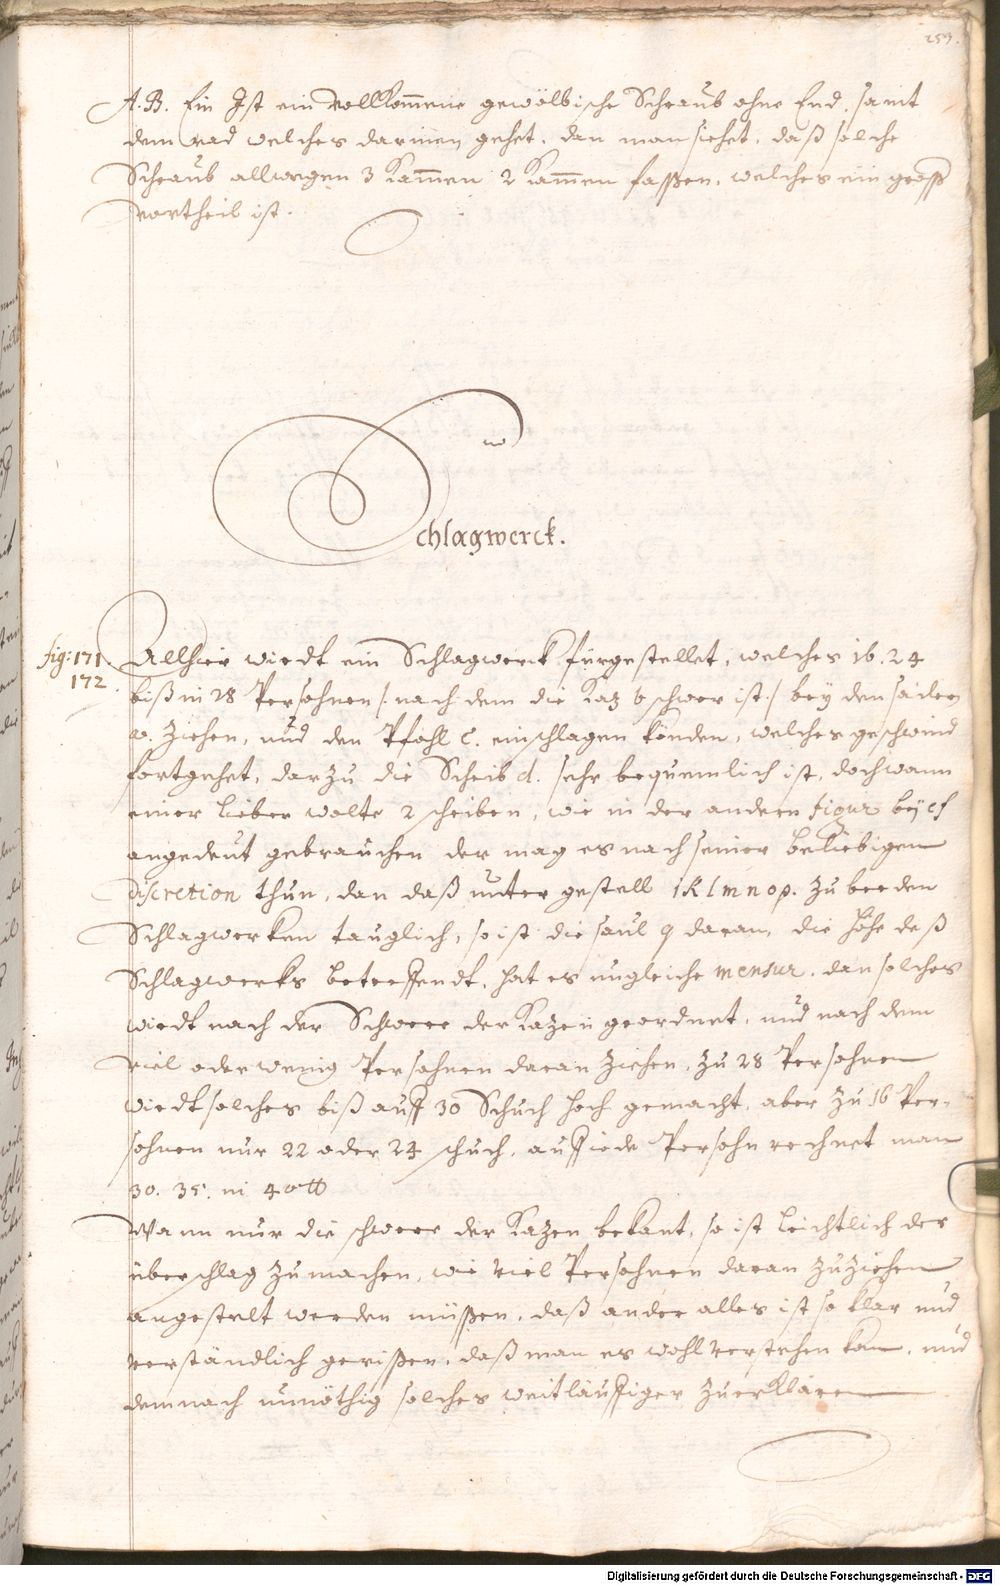 259.
A. B. Ein Ist ein vollkommene gewölbische Schraub ohne End, samt
dem rad welches darinnen gehet, dan man siehet, daß solche
Schraub allwegen 3 Kammen 2 Kammen fassen, welches ein groß
vortheil ist.
Schlagwerck.
fig: 171.
172.
Allhier wirdt ein Schlagwerck fürgestellet, welches 16. 24
biß in 28 Persohnen /: nach dem die Kaz b schwer ist :/ bey den sailen
a. Ziehen, und den Pfahl c. einschlagen könden, welches geschwind
fortgehet, darzu die Scheib d. sehr bequemlich ist, doch wann
einer lieber wolte 2 scheiben, wie in der andern figur bey ef
angedeut gebrauchen der mag es nach seiner beliebigen
discretion thun, dan daß unter gestell i k l m n o p. zu beeden
Schlagwerken tauglich, so ist die saul q daran, die Höhe deß
Schlagwerks betreffendt, hat es ungleiche mensur, dan solches
wirdt nach der Schwere der Kazen geordnet, und nach dem
viel oder wenig Persohnen daran ziehen, zu 28 Persohnen
wirdt solches biß auff 30 Schuch hoch gemacht, aber zu 16 Per-
sohnen nur 22 oder 24 schuch, auff iede Persohn rechnet man
30. 35. in 40 ℔
Wann nur die schwere der Kazen bekant, so ist leichtlich der
überschlag zu machen, wie viel Persohnen daran zuziehen
angestelt werden müssen, daß ander alles ist so klar und
verständlich gerissen, daß man es wohl verstehen kan, und
demnach unnöthig solches weitläuffiger zuerklären
Digitalisierung gefördert durch die Deutsche Forschungsgemeinschaft - DFG